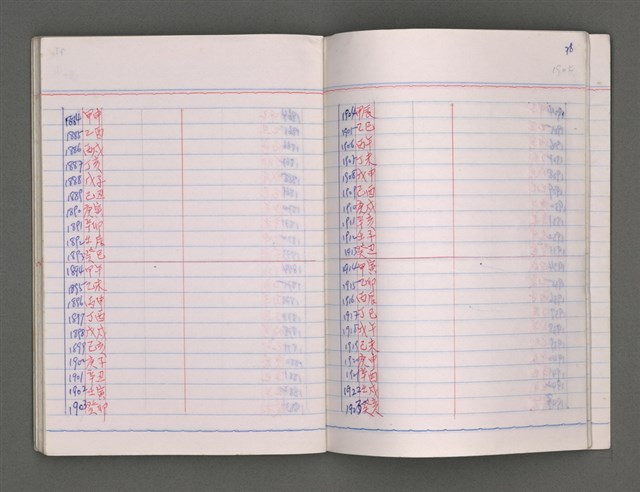 1884 甲申
1885 乙酉
1886 丙戌
1887 丁亥
1888 戊子
1889 己丑
1890 庚寅
1891 辛卯
1892 壬辰
1893 癸巳
1894 甲午
1895 乙未
1896 丙申
1897 丁酉
1898 戊戌
1899 己亥
1900 庚子
1901 辛丑
1902 壬寅
1903 癸卯
78
1904 甲辰
1905 乙巳
1906 丙午
1907 丁未
1908 戊申
1909 己酉
1910 庚戌
1911 辛亥
1912 壬子
1913 癸丑
1914 甲寅
1915 乙卯
1916 丙辰
1917 丁巳
1918 戊午
1919 己未
1920 庚申
1921 辛酉
1922 壬戌
1923 癸亥